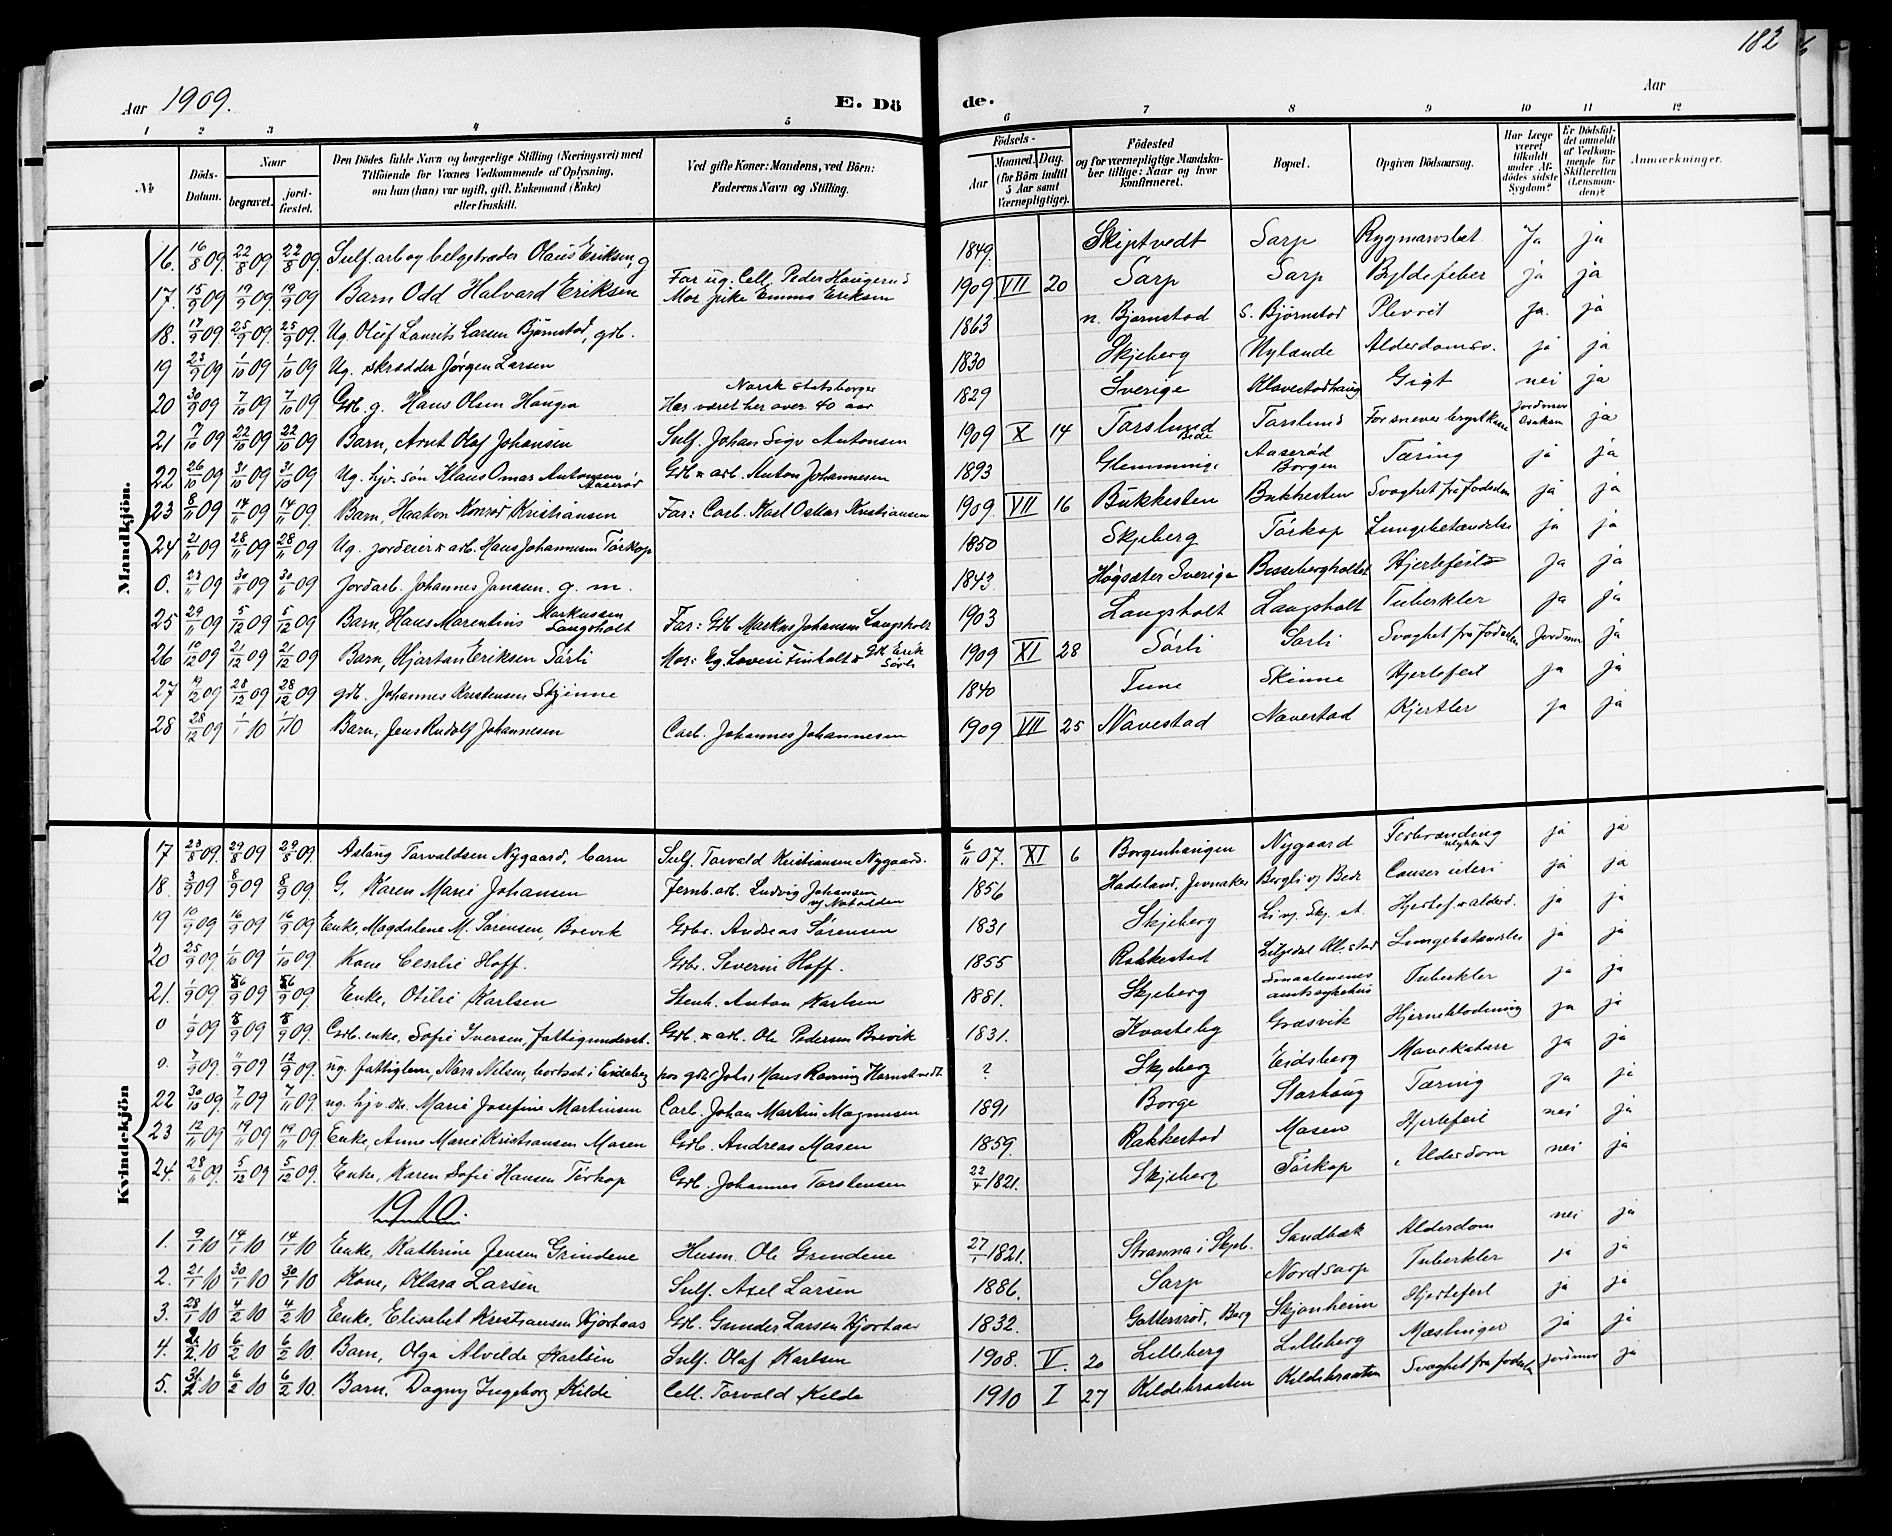 182
Aar 1909. E. Dö de. Aar
1 2 3 4 5 6 7 8 9 10 11 12
No Döds-Datum. Naar begravet. jord-fæstet. Den Dödes fulde Navn og borgerlige Stilling (Næringsvei) med Tilföiende for Voxnes Vedkommende af Oplysning, om hun (han) var ugift, gift, Enkemand (Enke) eller fraskilt. Ved gifte Koner: Mandens, ved Börn: Faderens Navn og Stilling. Födsels- Aar Maaned. Dag. (for Börn indtil 5 Aar samt Værnepligtige). Födested og for værnepligtige Mandskaber tillige: Naar og hvor konfirmeret. Bopæl. Opgiven Dödsaarsag. Har Læge været tilkaldt under Afdödes sidste Sygdom? Er Dödsfaldet anmeldt af Vedkommende for Skifteretten (Lensmanden)? Anmærkninger.
Mandkjön.
16. 16/8 09. 22/8 09 22/8 09. Sulf. arb og belgtræder Olaus Eriksen, g 1849. Skiptvedt Sarp Rygmarvsbet Ja ja
17. 15/9 09. 19/9 09. 19/9 09 Barn Odd Halvard Eriksen Far ug. Cell. Peder Haugerud Mor pike Emma Eriksen 1909 VII 20 Sarp Sarp Byldefeber ja ja
18. 17/9 09. 25/9 09. 25/9 09. Ug. Oluf Laurits Larsen Bjørnstad, gdb. 1863 n. Bjørnstad S. Bjørnstad Plevrit Ja. ja
19 23/9 09 1/10 09 1/10 09 Ug. skrædder Jørgen Larsen 1830 Skjeberg Nylende Alderdomssv. ja ja
20 30/9 09 7/10 09 7/10 09 Gdb. g. Hans Olsen Hauga Norsk statsborger Har været her over 40 aar 1829 Sverige Klavestadhaug Gigt nei ja
21 7/10 09 22/10 09 22/10 09 Barn, Arnt Olaf Johansen Sulf. Johan Sigv Antonsen 1909 X 14 Torslund Torslund For snever brystkasse Jordmor ja
22 26/10 09 31/10 09 31/10 09 Ug. hjv. søn Klaus Omar Antonsen Aaserød Gdb & arb. Anton Johannesen 1893 Glemminge Aaserød Borgen Tæring ja ja
23 8/11 09 14/11 09 14/11 09 Barn, Haakon Konrod Kristiansen Far: Carb. Karl Oskar Kristiansen 1909 VII 16 Bukkesten Bukkesten Svaghet fra fødselen ja ja
24 21/11 09 28/11 09 28/11 09 Ug. jordeier & arb. Hans Johannesen Torkop 1850 Skjeberg Torkop Lungebetændelse ja ja
0. 23/11 09 30/11 09 30/11 09 Jordarb. Johannes Jansen. g. m. 1843 Høgsæter Sverige Bissebergholtet Hjertefeil ja ja
25 29/11 09 5/12 09 5/12 09 Barn, Hans Marentius Markussen Langsholt Far: Gdb Markus Johansen Langsholt 1903 Langsholt Langsholt Tuberkler ja ja
26 10/12 09 21/12 09 21/12 09 Barn, Hjartan Eriksen Sørli Mor: Ug. Lovise Finholt & Gdb Erik Sørli 1909 XI 28 Sørli Sørli Svaghet fra fødselen Jordmor ja
27 19/12 09 28/12 09 28/12 09 gdb. Johannes Kristensen Skjinne 1840 Tune Skinne Hjertefeil ja ja
28 28/12 09 1/1 10 1/1 10 Barn, Jens Rudolf Johannesen Carb. Johannes Johannesen 1909 VII 25 Navestad Navestad Kjertler ja ja
Kvindekjön
17 23/8 09. 29/8 09 29/8 09. Aslaug Torvaldsen Nygaard, barn Sulf. Torvald Kristiansen Nygaard. 6/11 07. XI 6 Borgenhaugen Nygaard Forbrænding ulykke ja ja
18. 3/9 09 8/9 09 8/9 09. G. Karen Marie Johansen Jernb. arb. Ludvig Johansen v/ Notodden 1856 Hadeland, Jevnaker Bergli v/ Berg Cancer uteri ja ja
19 10/9 09 16/9 09 16/9 09. Enke, Magdalene M. Sørensen, Brevik Gdbr. Andreas Sørensen 1831 Skjeberg Li v/ Skj. st. Hjertef. & alderd. ja ja
20 25/9 09. 1/10 09 1/10 09. Kone Cecilie Hoff. Gdbr. Severin Hoff. 1855 Rakkestad Liljedal Kl.stad Lungebetændelse ja ja
21. 1/9 09. 6/9 09 6/9 09. Enke, Otilie Karlsen Stenh. Anton Karlsen 1881. Skjeberg Smaalenenes amtssykehus Tuberkler ja ja
0 1/9 09 8/9 09 8/9 09. Gdb. enke, Sofie Iversen, fattigunderst. Gdb. & arb. Ole Pedersen Brevik 1831. Kvasteby Græsvik Hjerneblødning ja ja
0. 7/9 09. 11/9 09 12/9 09. ug. fattiglem, Nara Nilsen, bortsat i Eidsberg hos gdbr Johs. Hans Ravneng Harnestvedt. ? Skjeberg Eidsberg Mavekatarr ja ja
22 30/10 09 7/11 09 7/11 09. ug. hjv. dtr. Marie Josefine Martinsen Carb. Johan Martin Magnussen 1891 Borge Starhaug Tæring ja ja
23 12/11 09 19/11 09 19/11 09. Enke, Anne Marie Kristiansen Mosen Gdb. Andreas Mosen 1859. Rakkestad Mosen Hjertefeil nei ja
24. 28/11 09. 5/12 09 5/12 09. Enke, Karen Sofie Hansen Torkop Gdb. Johannes Torstensen 22/4 1821. Skjeberg Torkop Alderdom nei ja
1910.
1. 9/1 10 14/1 10 14/1 10 Enke, Kathrine Jensen Grindene Husm. Ole Grindene 27/1 1821. Stranna i Skjeb. Sandbæk Alderdom nei ja
2. 21/1 10 30/1 10 30/1 10 Kone, Klara Larsen Sulf. Axel Larsen 1886. Sarp Nordsarp Tuberkler ja ja
3. 28/1 10 4/2 10 4/2 10 Enke, Elisabet Kristiansen Hjortaas Gdb. Gunder Larsen Hjortaas 1832. Gattersrød, Berg Skjønheim Hjertefeil ja ja
4. 2/2 10 6/2 10 6/2 10. Barn, Olga Alvilde Karlsen Sulf. Olaf Karlsen 1908. V. 20 Lilleberg Lilleberg Mæslinger ja ja
5. 10 6/2 10 6/2 10. Barn. Dagny Ingeborg Kilde Cell. Torvald Kilde 1910 I 27 Kildebraaten Kildebraaten Svaghet fra fødselen jordmor ja